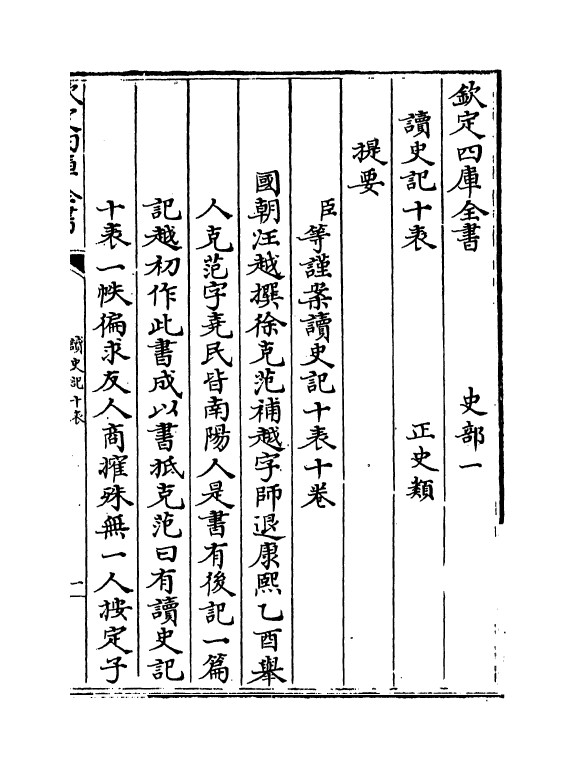 欽定四庫全書　史部一
讀史記十表　正史類
提要
臣等謹案讀史記十表十卷
國朝汪越撰徐克范補越字師退康熙乙酉舉
人克范字堯民皆南陽人是書有後記一篇
記越初作此書成以書抵克范曰有讀史記
十表一帙徧求友人商搉殊無一人按定子
欽定四庫全書
讀史記十表
一